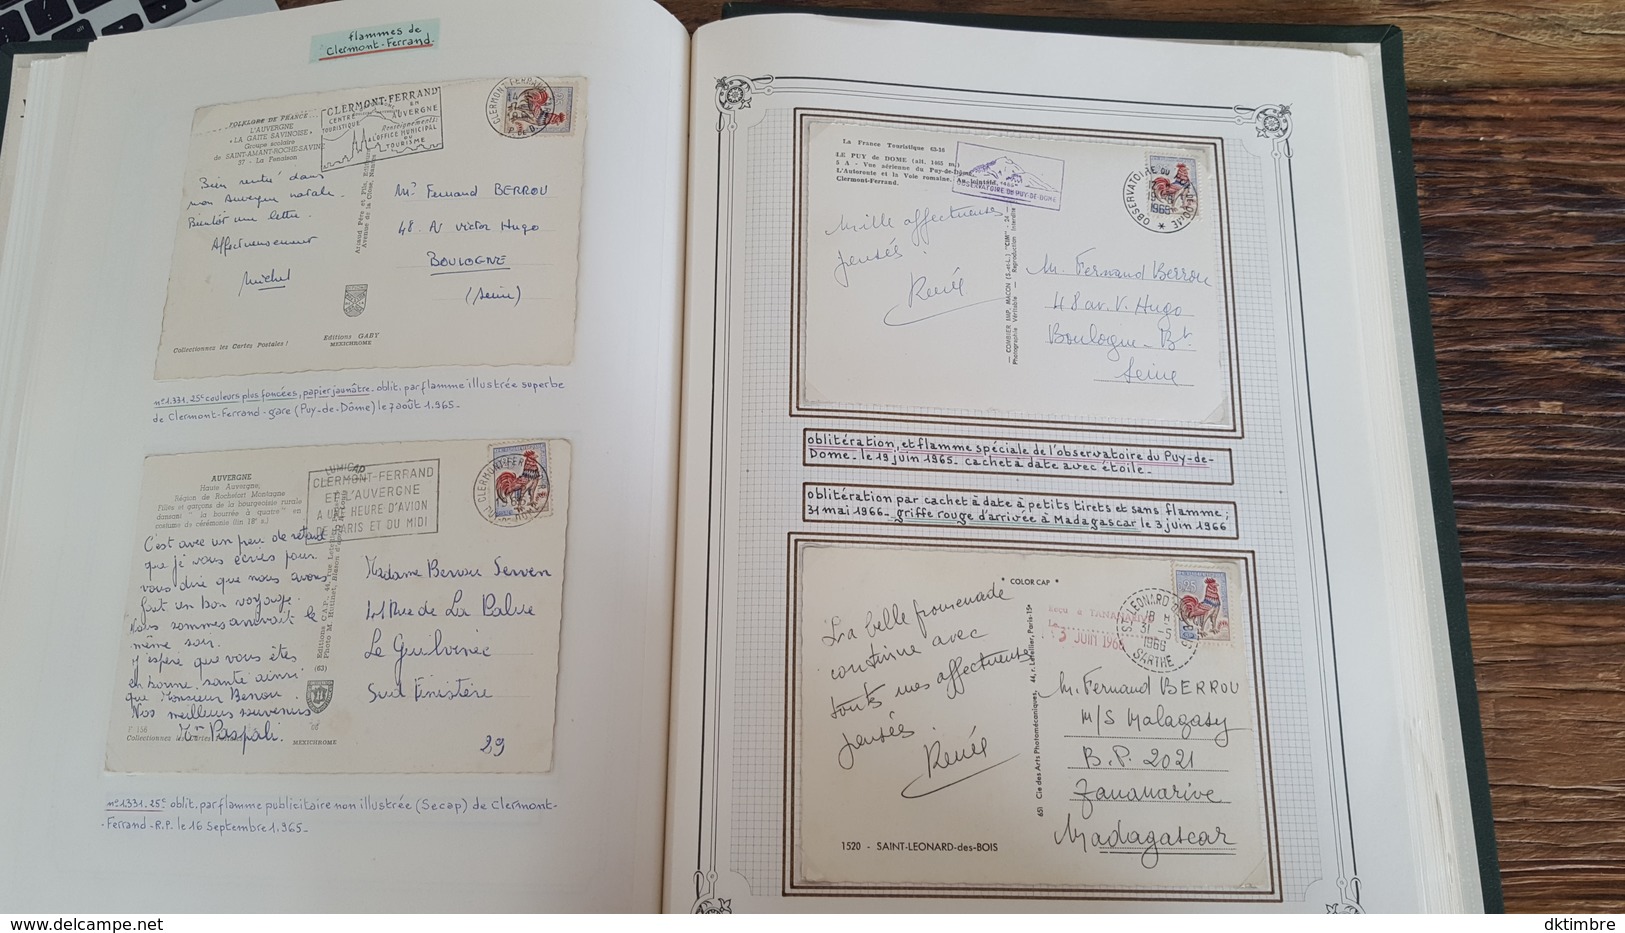 flammes de
Clermont-Ferrand.
FOLKLORE DE FRANCE
L'AUVERGNE
« LA GAITE SAVINOISE »
Groupe scolaire
de SAINT-AMANT-ROCHE-SAVINE
37 - La Fenaison
CLERMONT-FERRAND
CENTRE
TOURISTIQUE
EN
AUVERGNE
Renseignements:
A L'OFFICE MUNICIPAL
DU
TOURISME
CLERMONT-FERRAND
P. DE D.
Bien rentré dans
mon Auvergne natale.
Bientôt une lettre.
Affectueusement
Michel
Mr Fernand BERROU
48 Av Victor Hugo
BOULOGNE
(Seine)
Editions GABY
MEXICHROME
Collectionnez les Cartes Postales !
nº1.331. 25c couleurs plus foncées, papier jaunâtre. oblit. par flamme illustrée superbe
de Clermont-Ferrand-gare (Puy-de-Dôme) le 7 août 1.965.
AUVERGNE
Haute Auvergne;
Région de Rochefort Montagne
Filles et garçons de la bourgeoisie rurale
dansant " la bourrée à quatre" en
costume de cérémonie (fin 18e s.)
LUMICAP
CLERMONT-FERRAND
ET L'AUVERGNE
A UNE HEURE D'AVION
DE PARIS ET DU MIDI
C'est avec un peu de retard
que je vous écris pour
vous dire que nous avons
fait un bon voyage.
Nous sommes arrivait le
même soir.
J'espère que vous êtes
en bonne santé ainsi
que Monsieur Berrou.
Nos meilleurs souvenirs
Mme Paspali.
Madame Berrou Serven
41 Rue de La Palue
Le Guilvinec
Sud Finistère
29
(63)
Collectionnez les Cartes
MEXICHROME
nº1.331. 25c oblit. par flamme publicitaire non illustrée (Secap) de Clermont-
-Ferrand-R.P. le 16 Septembre 1.965.
La France Touristique 63-16
LE PUY de DOME (alt. 1465 m.)
5 A - Vue aérienne du Puy-de-Dôme.
L'Autoroute et la Voie romaine. Au lointain,
Clermont-Ferrand.
OBSERVATOIRE DU PUY-DE-DOME
OBSERVATOIRE DU PUY-DE-DOME
19 - 6
1965
Mille affectueuses
pensés.
Renée
M. Fernand Berrou
48 av. V. Hugo
Boulogne - Bt
Seine
COMBIER IMP. MACON (S.-et-L.) "CIM"
Photographie Véritable - Reproduction Interdite
oblitération, et flamme spéciale de l'observatoire du Puy-de-
Dome. le 19 juin 1965. cachet à date avec étoile.
oblitération par cachet à date à petits tirets et sans flamme;
31 mai 1966. griffe rouge d'arrivée à Madagascar le 3 juin 1966
* COLOR CAP *
Reçu à TANANARIVE
Le
3 JUIN 1966
ST LEONARD DES BOIS
18 H
31 - 5
1966
SARTHE
La belle promenade
continue avec
touts mes affectueuses
pensées
Renée
M. Fernand BERROU
M/S Malagasy
B.P. 2021
Tananarive
Madagascar
651 Cie des Arts Photomécaniques, 44, r. Letellier, Paris-15e
1520 - SAINT-LEONARD-des-BOIS
delcampe.net
dktimbre